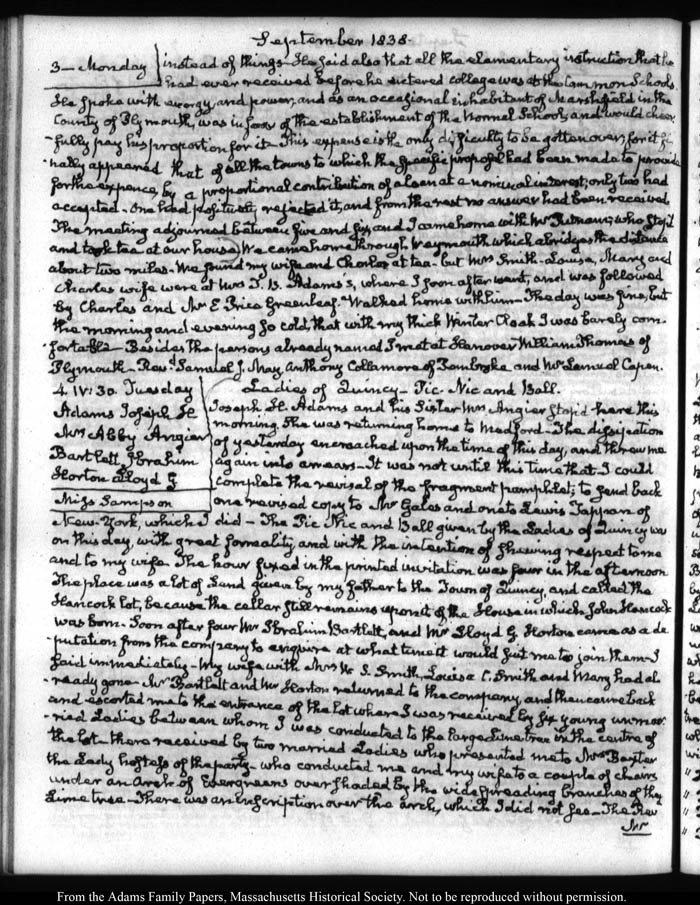 September 1838.
3 — Monday
instead of things — He said also that all the elementary instruction that he
had ever received before he entered college was at the Common Schools.
He spoke with energy, and power, and as an occasional inhabitant of Marshfield in the
County of Plymouth, was in favor of the establishment of the Normal School, and would cheer-
-fully pay his proportion for it — This expense is the only difficulty to be gotten over, for it fi-
nally appeared that of all the towns to which the specific proposal had been made to provide
for the expence, by a proportional contribution of a loan at a nominal interest, only two had
accepted — one had positively rejected it, and from the rest no answer had been received.
The meeting adjourned between five and six, and I came home with Mr Putnam, who stop'd
and took tea at our house. We came home through Weymouth which abridges the distance
about two miles. We found my wife and Charles at tea — but Mrs Smith — Louisa, Mary and
Charles wife were at Mrs T. B. Adams's, where I soon after went, and was followed
by Charles and Mr E. Price Greenleaf. Walked home with him — The day was fine, but
the morning and evening so cold, that with my thick Winter Cloak I was barely com-
-fortable — Besides the persons already named I met at Hanover William Thomas of
Plymouth — Revd Samuel J. May, Anthony Collamore of Pembroke and Mr Lemuel Capen.
4. IV: 30. Tuesday
Adams Joseph H.
Mrs Abby Angier
Bartlett Ibrahim
Horton Lloyd G
Miss Sampson
Ladies of Quincy — Pic-Nic and Ball.
Joseph H. Adams and his Sister Mrs Angier stop'd here this
morning. She was returning home to Medford — The dissipation
of yesterday encroached upon the time of this day, and threw me
again into arrears — It was not until this time that I could
complete the revisal of the fragment pamphlet, to send back
one revised copy to Mr Gales and one to Lewis Tappan of
New-York, which I did — The Pic Nic and Ball given by the Ladies of Quincy was
on this day, with great formality, and with the intention of shewing respect to me
and to my wife. The hour fixed in the printed invitation was four in the afternoon
The place was a lot of Land given by my father to the Town of Quincy, and called the
Hancock lot, because the cellar still remains upon it of the House in which John Hancock
was born. Soon after four Mr Ibrahim Bartlett, and Mr Lloyd G. Horton came as a de-
-putation from the company to enquire at what time it would suit me to join them — I
said immediately — My wife with Mrs W. S. Smith, Louisa C. Smith and Mary had al-
-ready gone — Mr Bartlett and Mr Horton returned to the company, and then came back
and escorted me to the entrance of the lot where I was received by six young unmar-
-ried Ladies between whom I was conducted to the large Lime tree in the centre of
the lot — there received by two married Ladies who presented me to Mrs Baxter
the Lady hostess of the party — who conducted me and my wife to a couple of chairs
under an Arch of Evergreens overshaded by the wide spreading branches of the
Lime tree — There was an inscription over the arch, which I did not see — The Rev
Mr
From the Adams Family Papers, Massachusetts Historical Society. Not to be reproduced without permission.